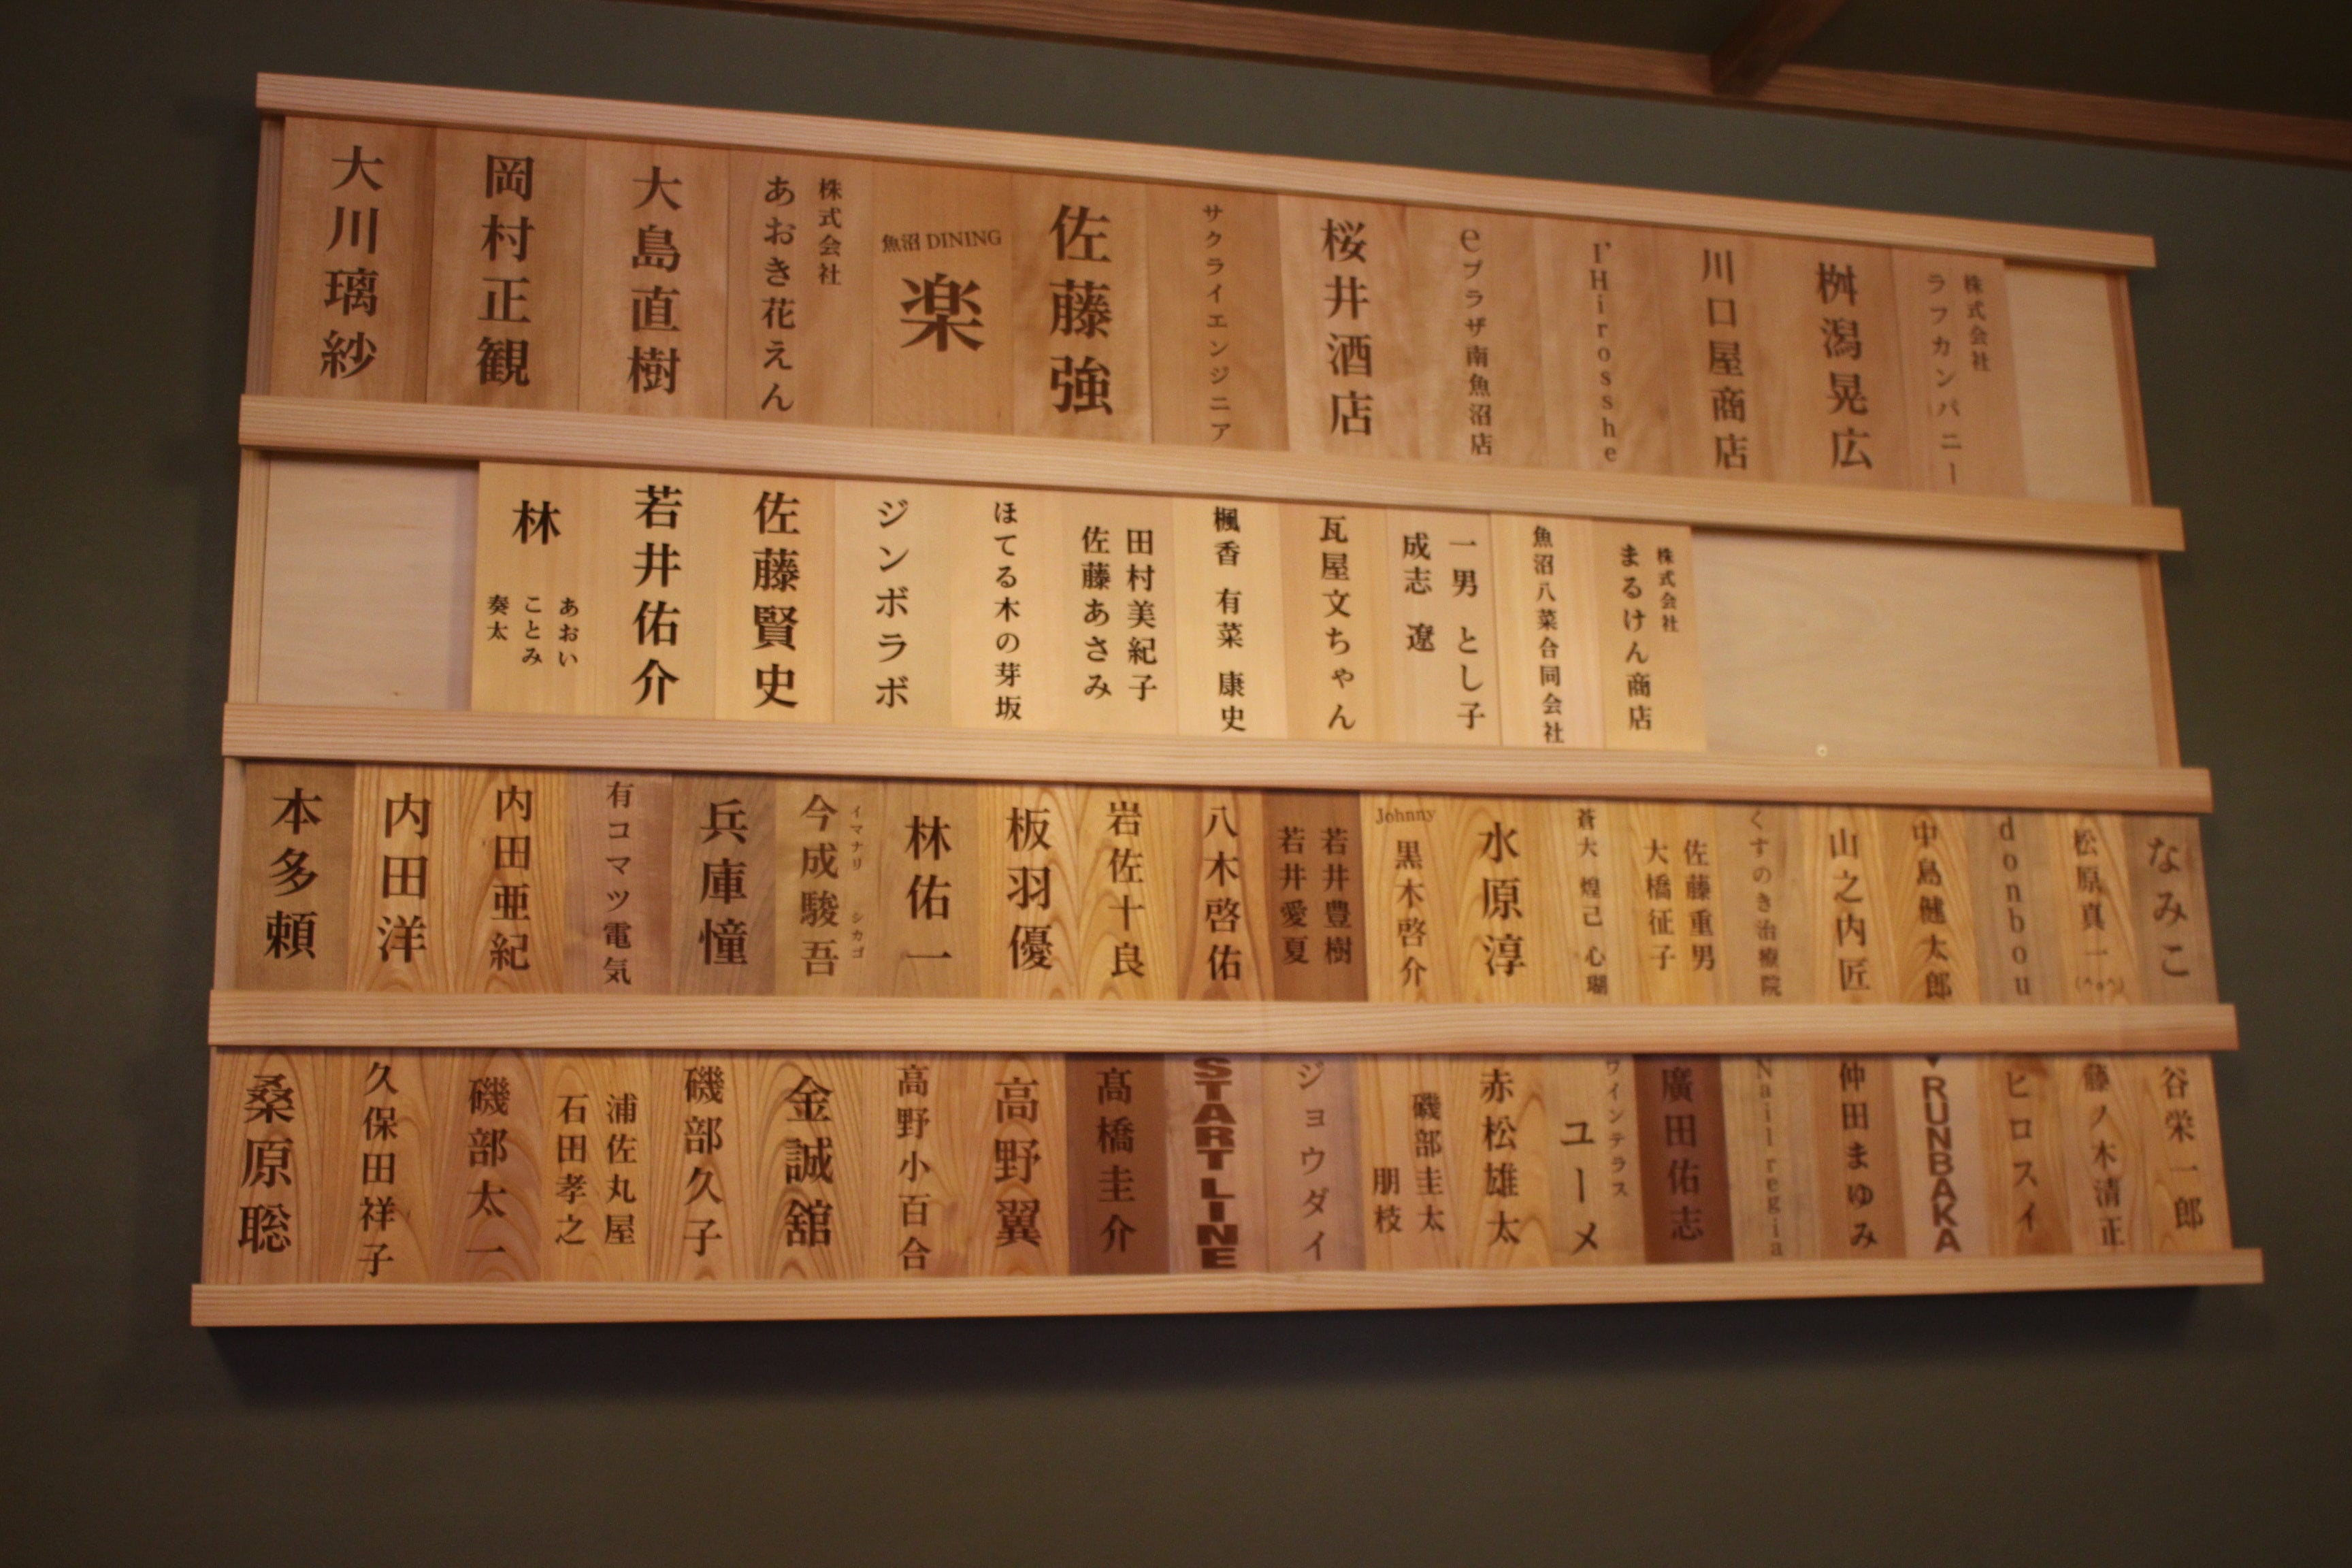 株式会社
ラフカンパニー
桝潟晃広
川口屋商店
l'Hirosshe
eプラザ南魚沼店
桜井酒店
サクライエンジニア
佐藤強
魚沼DINING
楽
株式会社
あおき花えん
大島直樹
岡村正観
大川璃紗
株式会社
まるけん商店
魚沼八菜合同会社
一男 とし子
成志 遼
瓦屋文ちゃん
楓香 有菜 康史
田村美紀子
佐藤あさみ
ほてる木の芽坂
ジンボラボ
佐藤賢史
若井佑介
林
あおい
ことみ
奏太
なみこ
松原真一
donbou
中島健太郎
山之内匠
くすのき治療院
佐藤重男
大橋征子
蒼大 煌己 心瑚
水原淳
Johnny
黒木啓介
若井豊樹
若井愛夏
八木啓佑
岩佐十良
板羽優
林佑一
イマナリ シカゴ
今成駿吾
兵庫憧
有コマツ電気
内田亜紀
内田洋
本多頼
谷栄一郎
藤ノ木清正
ヒロスイ
RUNBAKA
仲田まゆみ
Nail regia
廣田佑志
ワインテラス
ユーメ
赤松雄太
磯部圭太
朋枝
ジョウダイ
START LINE
髙橋圭介
高野翼
高野小百合
金誠舘
磯部久子
浦佐丸屋
石田孝之
磯部太一
久保田祥子
桑原聡